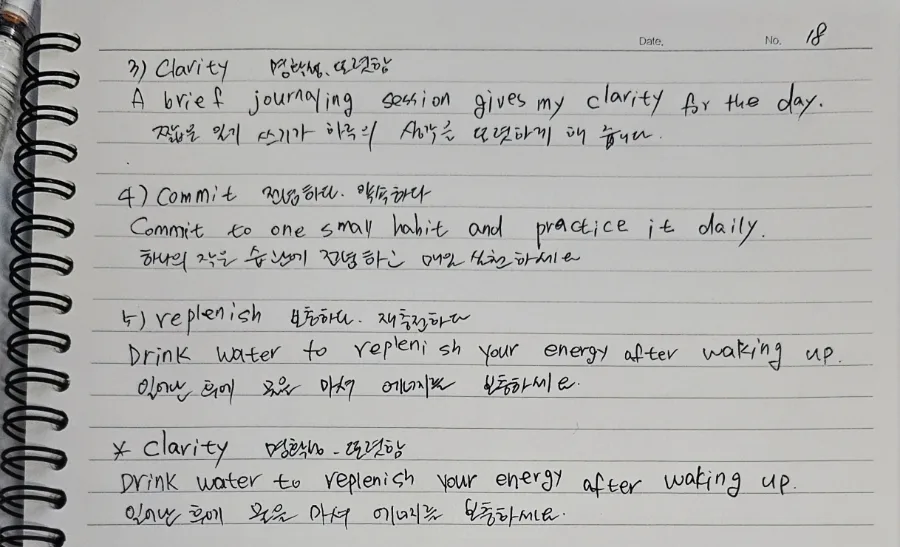 Date.
No. 18
3) Clarity 명확성, 또렷함
A brief journaling session gives my clarity for the day.
짧은 일기 쓰기가 하루의 생각을 또렷하게 해 줍니다.
4) Commit 전념하다. 약속하다
Commit to one small habit and practice it daily.
하나의 작은 습관에 전념하고 매일 실천하세요
5) replenish 보충하다. 재충전하다
Drink water to replenish your energy after waking up.
일어난 후에 물을 마셔 에너지를 보충하세요.
* Clarity 명확성 - 또렷함
Drink water to replenish your energy after waking up.
일어난 후에 물을 마셔 에너지를 보충하세요.